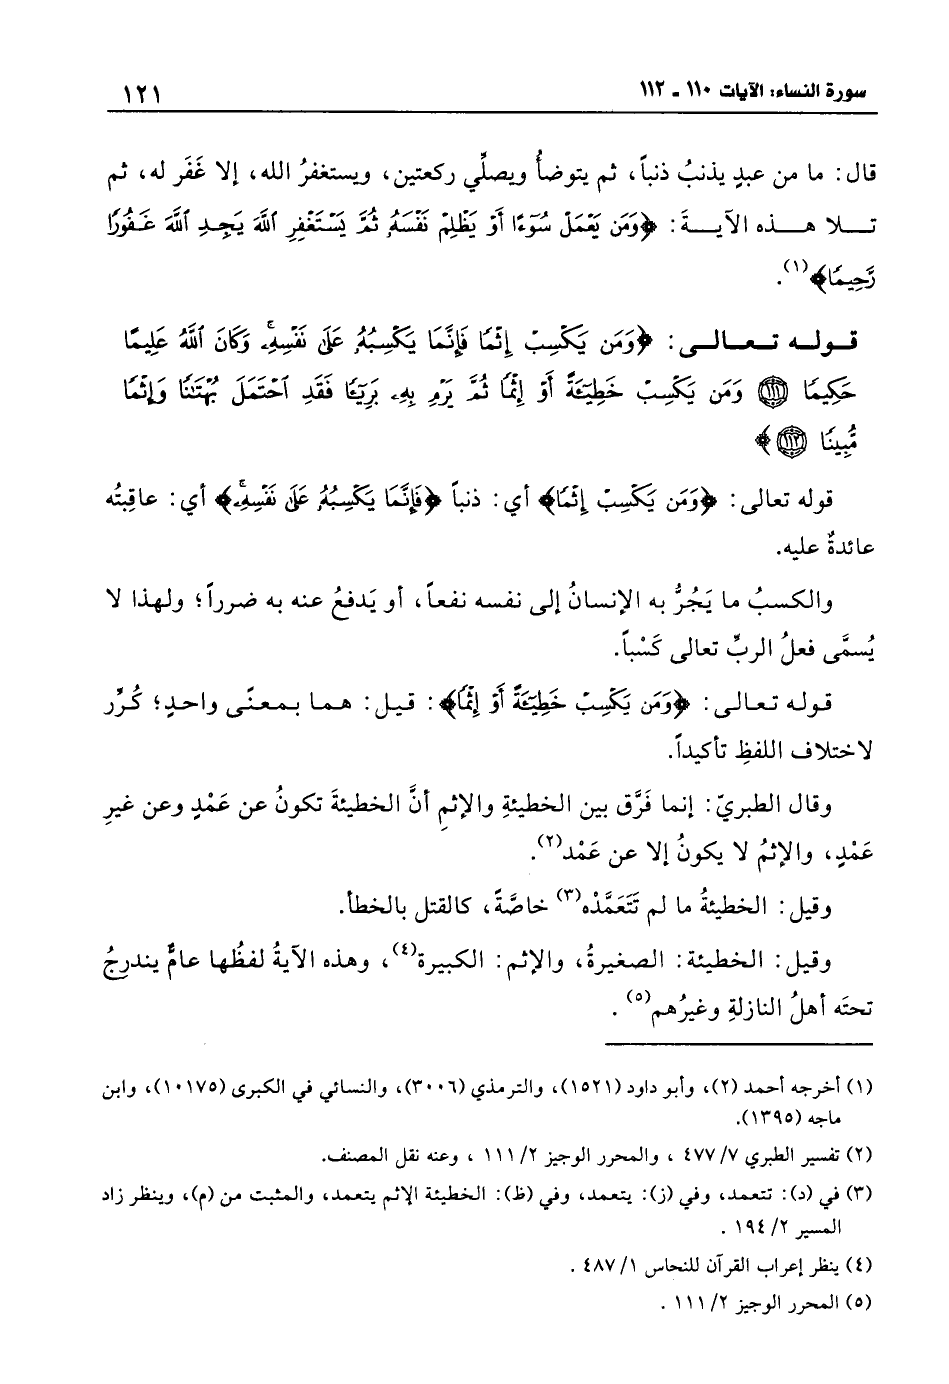 سورة النساء: الآيات ١١٠ - ١١٢ ١٢١
قال: ما من عبدٍ يذنبُ ذنباً، ثم يتوضأُ ويصلِّي ركعتين، ويستغفرُ الله، إلا غَفَر له، ثم
تلا هذه الآيةَ: ﴿وَمَن يَعْمَلْ سُوٓءًا أَوْ يَظْلِمْ نَفْسَهُۥ ثُمَّ يَسْتَغْفِرِ ٱللَّهَ يَجِدِ ٱللَّهَ غَفُورًا
رَّحِيمًا﴾(١).
قوله تعالى: ﴿وَمَن يَكْسِبْ إِثْمًا فَإِنَّمَا يَكْسِبُهُۥ عَلَىٰ نَفْسِهِۦۚ وَكَانَ ٱللَّهُ عَلِيمًا
حَكِيمًا ١١١ وَمَن يَكْسِبْ خَطِيٓـَٔةً أَوْ إِثْمًا ثُمَّ يَرْمِ بِهِۦ بَرِيٓـًٔا فَقَدِ ٱحْتَمَلَ بُهْتَٰنًا وَإِثْمًا
مُّبِينًا ١١٢﴾
قوله تعالى: ﴿وَمَن يَكْسِبْ إِثْمًا﴾ أي: ذنباً ﴿فَإِنَّمَا يَكْسِبُهُۥ عَلَىٰ نَفْسِهِۦۚ﴾ أي: عاقِبتُه
عائدةٌ عليه.
والكسبُ ما يَجُرُّ به الإنسانُ إلى نفسه نفعاً، أو يَدفعُ عنه به ضرراً؛ ولهذا لا
يُسمَّى فعلُ الربِّ تعالى كَسْباً.
قوله تعالى: ﴿وَمَن يَكْسِبْ خَطِيٓـَٔةً أَوْ إِثْمًا﴾: قيل: هما بمعنًى واحدٍ؛ كُرِّر
لاختلاف اللفظِ تأكيداً.
وقال الطبريّ: إنما فَرَّق بين الخطيئةِ والإثمِ أنَّ الخطيئةَ تكونُ عن عَمْدٍ وعن غيرِ
عَمْدٍ، والإثمُ لا يكونُ إلا عن عَمْد(٢).
وقيل: الخطيئةُ ما لم تَتَعَمَّدْه(٣) خاصَّةً، كالقتل بالخطأ.
وقيل: الخطيئة: الصغيرةُ، والإثم: الكبيرة(٤)، وهذه الآيةُ لفظُها عامٌّ يندرجُ
تحتَه أهلُ النازلةِ وغيرُهم(٥).
(١) أخرجه أحمد (٢)، وأبو داود (١٥٢١)، والترمذي (٣٠٠٦)، والنسائي في الكبرى (١٠١٧٥)، وابن
ماجه (١٣٩٥).
(٢) تفسير الطبري ٧/ ٤٧٧ ، والمحرر الوجيز ٢/ ١١١ ، وعنه نقل المصنف.
(٣) في (د): تتعمد، وفي (ز): يتعمد، وفي (ظ): الخطيئة الإثم يتعمد، والمثبت من (م)، وينظر زاد
المسير ٢/ ١٩٤ .
(٤) ينظر إعراب القرآن للنحاس ١/ ٤٨٧ .
(٥) المحرر الوجيز ٢/ ١١١ .